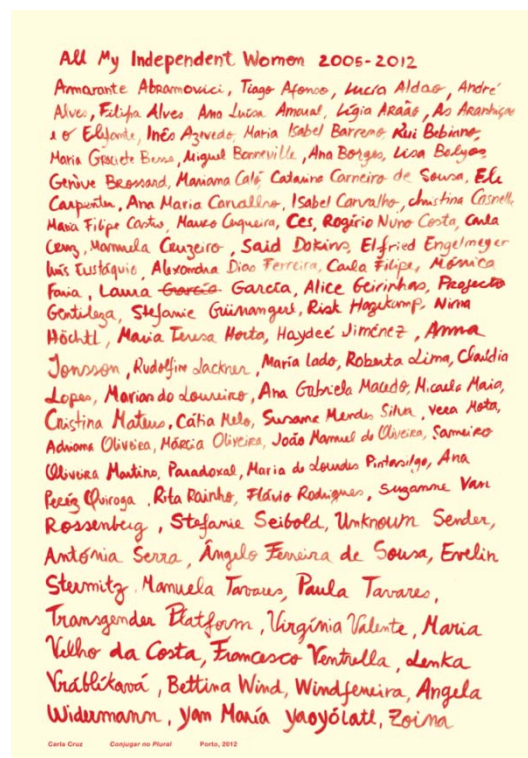 All My Independent Women 2005-2012
Ammarante Abramovici, Tiago Afonso, Lucía Aldao, André
Alves, Filipa Alves. Ana Luísa Amaral, Lígia Araão, As Aranhiças
e o Elefante, Inês Azevedo, Maria Isabel Barreno, Rui Bebiano,
Maria Graciete Besse, Miguel Bonneville, Ana Borges, Lisa Bolyos,
Genève Brossard, Mariana Caló, Catarina Carneiro de Sousa, Eli
Carpenter, Ana Maria Carvalho, Isabel Carvalho, Christina Casnellie
Maria Filipe Castro, Mauro Cerqueira, Ces, Rogério Nuno Costa, Carla
Cruz, Manuela Cruzeiro, Said Dokins, Elfried Engelmeyer
Luís Eustáquio, Alexandra Dias Ferreira, Carla Filipe, Mónica
Faria, Laura García García, Alice Geirinhas, Projecto
Gentileza, Stefanie Grünangerl, Risk Hazekamp, Nina
Höchtl, Maria Teresa Horta, Haydeé Jiménez, Anna
Jonsson, Rudolfine Lackner, María Lado, Roberta Lima, Claúdia
Lopes, Mariando Loureiro, Ana Gabriela Macedo, Micaela Maia,
Cristina Mateus, Cátia Melo, Susana Mendes Silva, Vera Mota,
Adriana Oliveira, Márcia Oliveira, João Manuel de Oliveira, Sameiro
Oliveira Martins, Paradoxal, Maria de Lourdes Pintasilgo, Ana
Peréz Quiroga, Rita Rainho, Flávio Rodrigues, Suzanne Van
Rossenberg, Stefanie Seibold, Unknown Sender,
Antónia Serra, Ângelo Ferreira de Sousa, Evelin
Stermitz. Manuela Tavares, Paula Tavares,
Transgender Platform, Virgínia Valente, Maria
Velho da Costa, Francesco Ventrella, Lenka
Vráblíkavá, Bettina Wind, Windferreira, Angela
Widermann, Yan María Yaoyólotl, Zoina
Carla Cruz Conjugar no Plural Porto, 2012